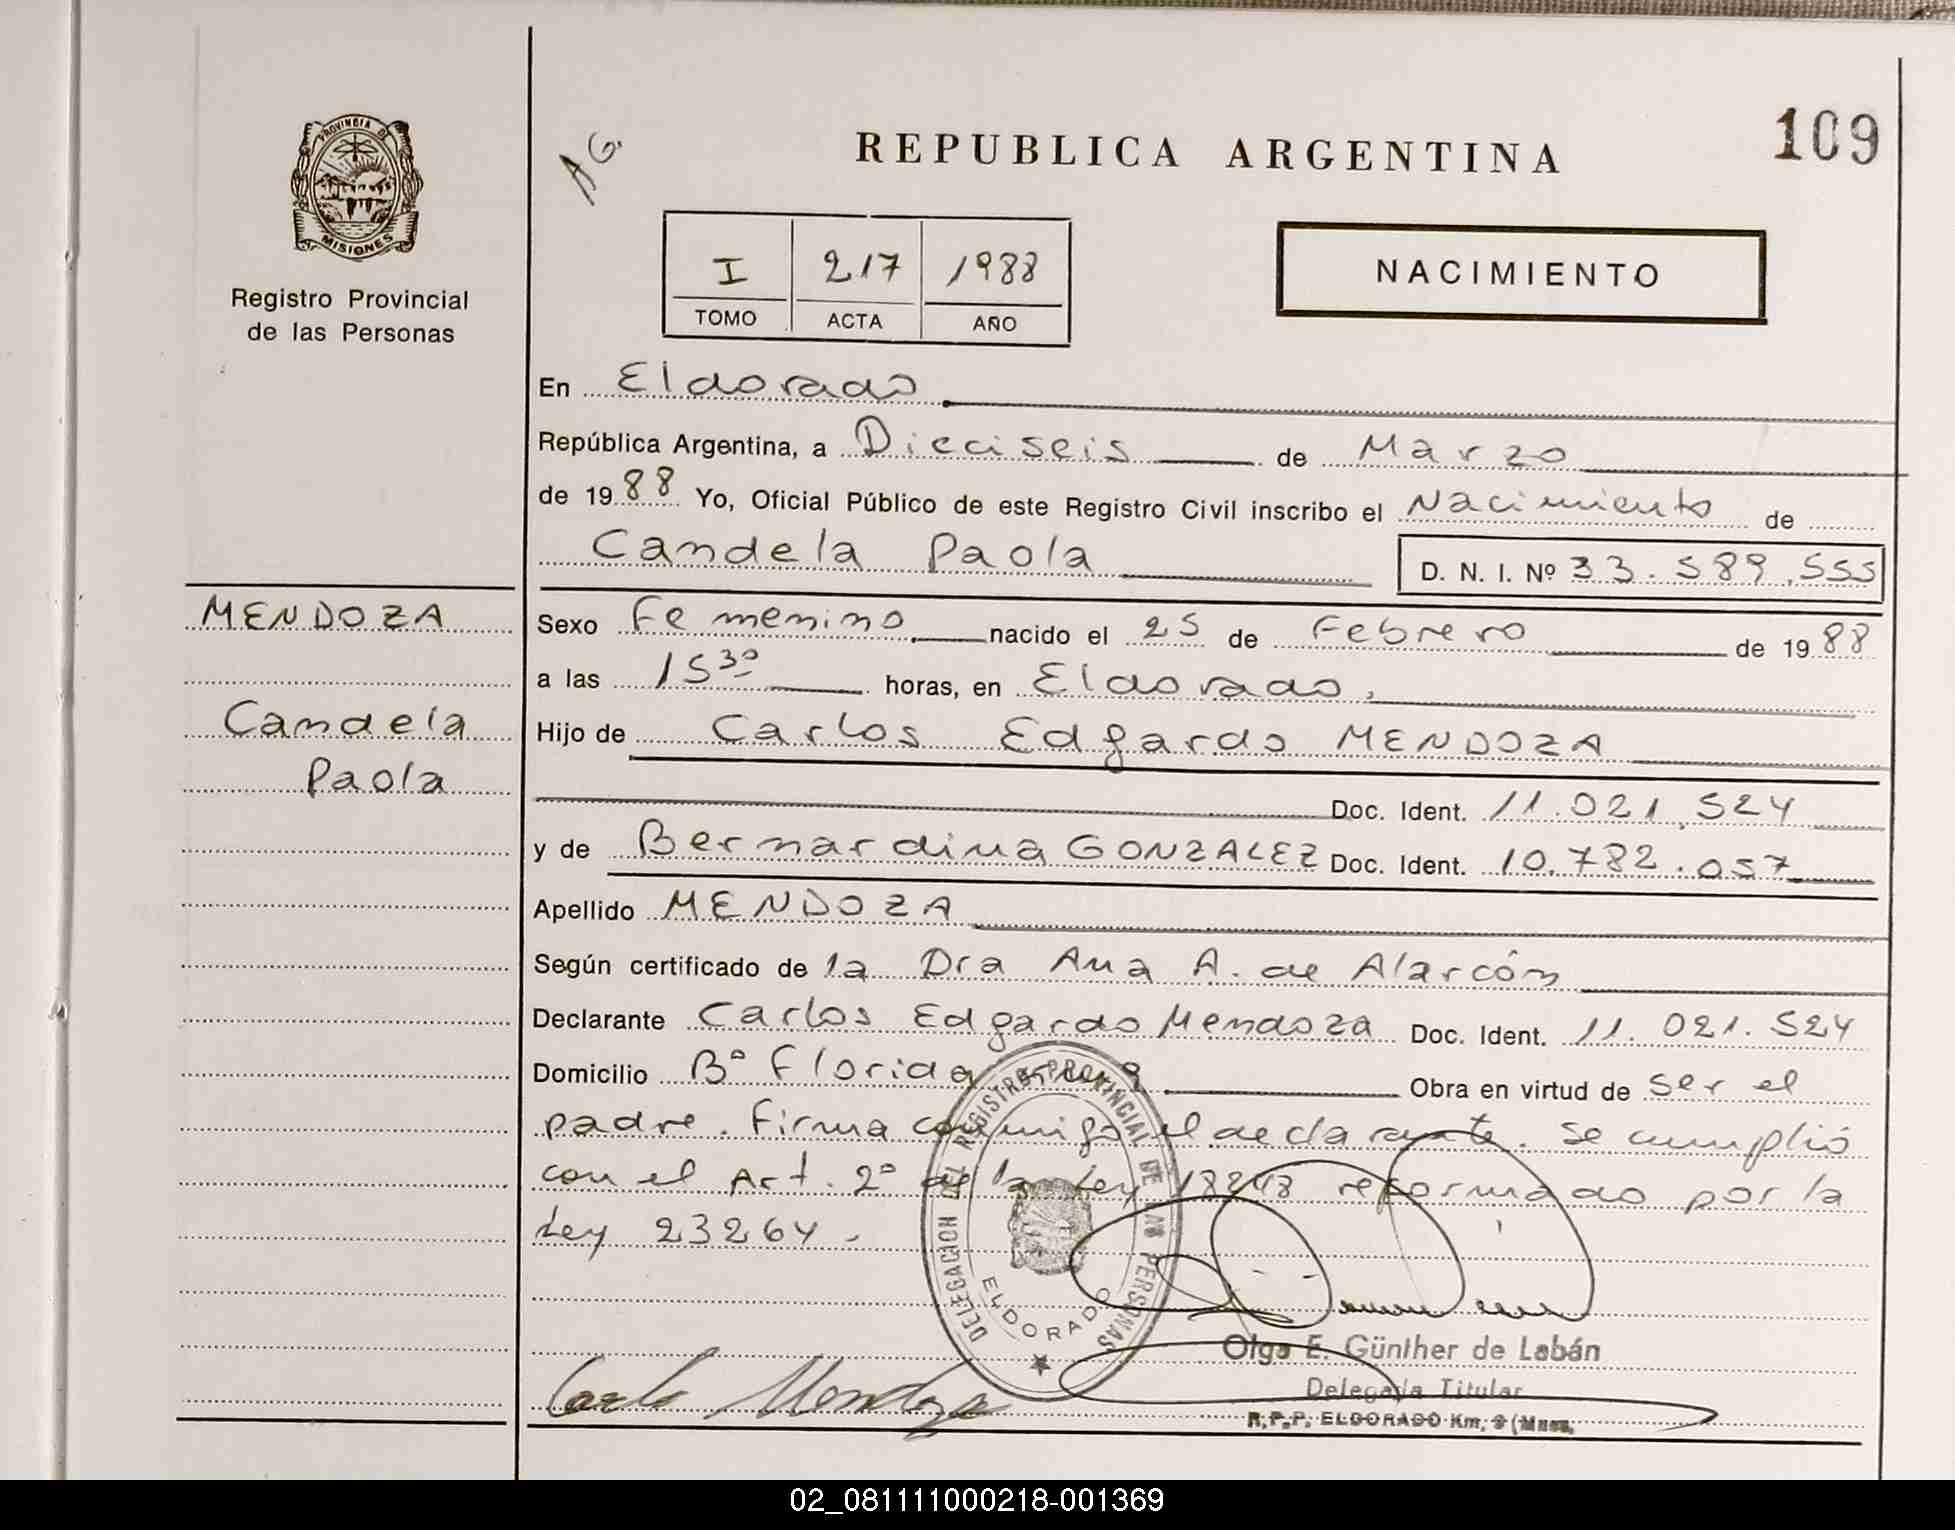 PROVINCIA DE
MISIONES
Registro Provincial
de las Personas
MENDOZA
Candela
Paola
AG.
REPUBLICA ARGENTINA
109
I 217 1988
TOMO ACTA AÑO
NACIMIENTO
En Eldorado
República Argentina, a Dieciseis de Marzo
de 1988 Yo, Oficial Público de este Registro Civil inscribo el Nacimiento de
Candela Paola D. N. I. Nº 33.589.555
Sexo Femenino nacido el 25 de Febrero de 1988
a las 15³⁰ horas, en Eldorado,
Hijo de Carlos Edgardo MENDOZA
Doc. Ident. 11.021.524
y de Bernardina GONZALEZ Doc. Ident. 10.782.057
Apellido MENDOZA
Según certificado de la Dra Ana A. de Alarcón
Declarante Carlos Edgardo Mendoza Doc. Ident. 11.021.524
Domicilio Bº Florida Km 9 Obra en virtud de ser el
padre. Firma conmigo el declarante. Se cumplió
con el Art. 2º de la Ley 18248 reformado por la
Ley 23264.
DELEGACION DEL REGISTRO PROVINCIAL DE LAS PERSONAS
ELDORADO
Carlos Mendoza
Olga E. Günther de Labán
Delegada Titular
R.P.P. ELDORADO Km. 9 (Mnes.
02_081111000218-001369